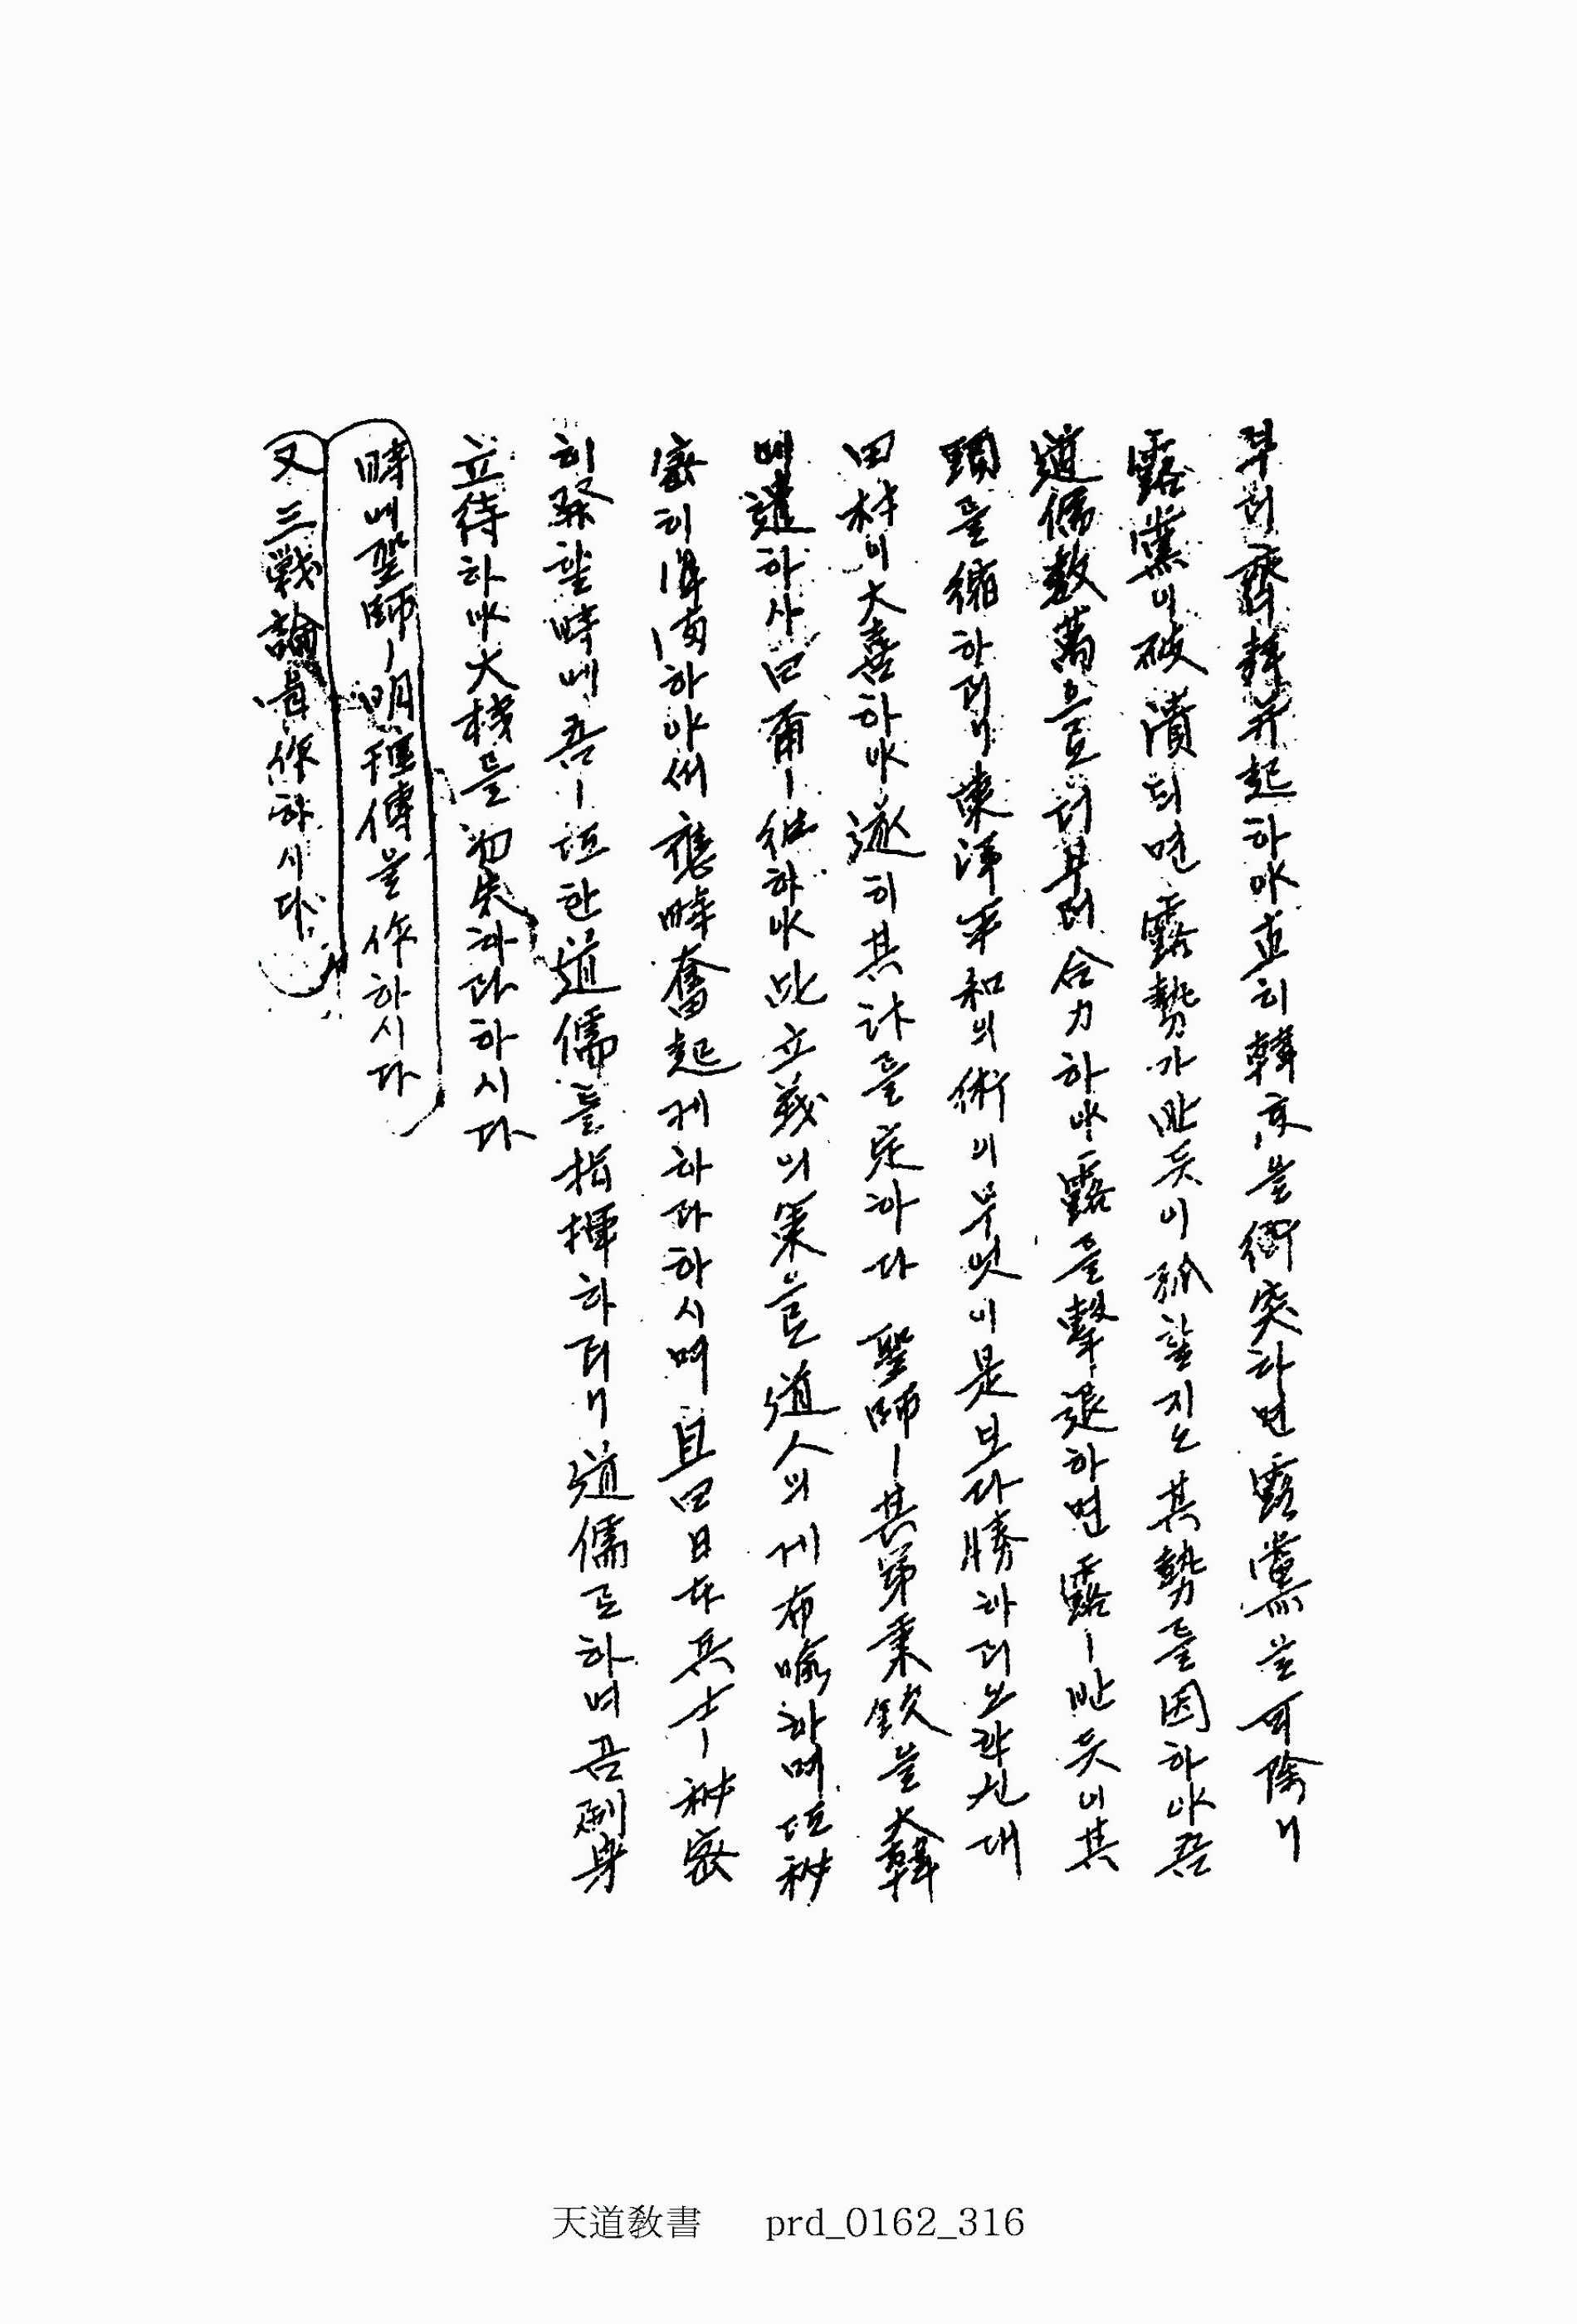 부터 齊聲并起하야 直히 韓京을 衝突하면 露黨을 可除니
露黨이 破潰되면 露勢가 반듯이 孤할지느 其勢를 因하야 吾
道儒 數萬으로더부러 合力하야 露를 擊退하면 露ㅣ 반듯이 其
頭를 縮하리니 東洋平和의 術의 무엇이 是보다 勝하리오 한대
田村이 大喜하야 遂히 其計를 定하다 聖師ㅣ 其弟秉欽을 大韓
에 遣하사 曰 爾ㅣ 往하야 此 立義의 策을 道人의게 布喩하며 또 秘
密히 하야써 應時奮起케하라 하시며 且曰 日本兵士ㅣ 秘密
히 發할 時에 吾ㅣ 또한 道儒를 指揮하리니 道儒로 하여금 劑身
立待하야 大機를 勿失하라 하시다
時에 聖師ㅣ 明理傳을 作하시다
又 三戰論을 作하시다
天道教書 prd_0162_316